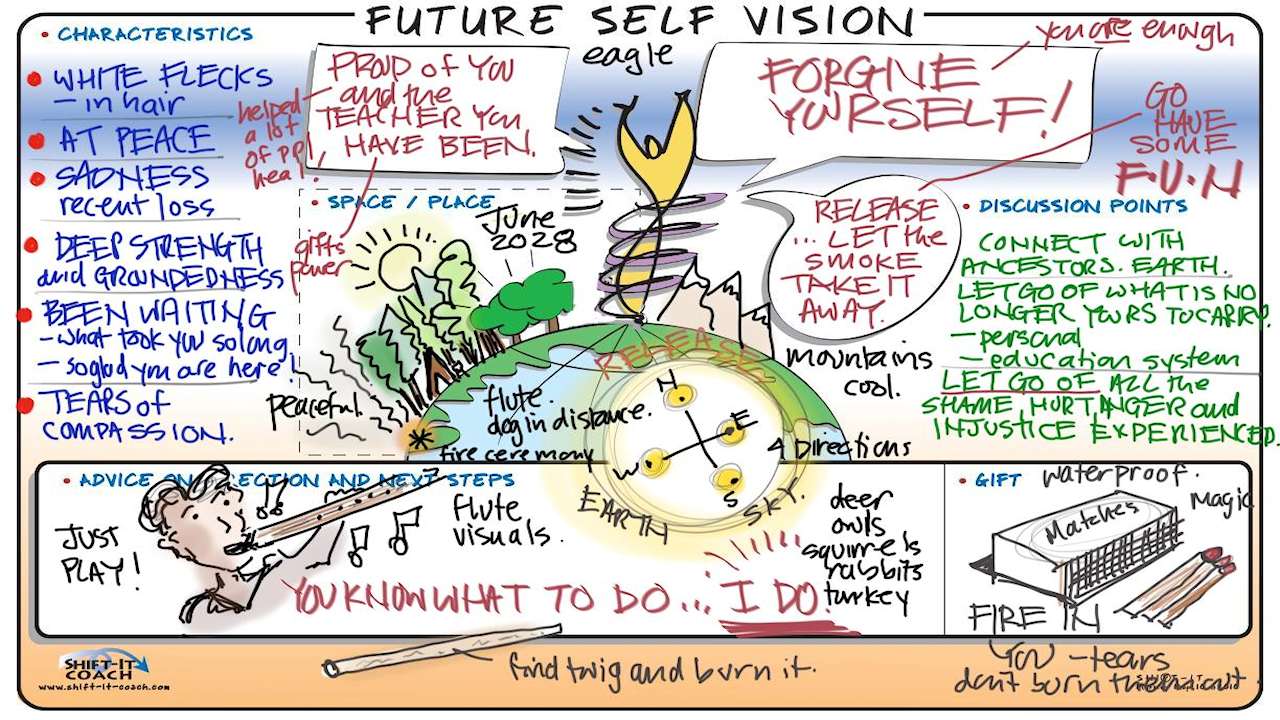 FUTURE SELF VISION
• CHARACTERISTICS
• WHITE FLECKS
– in hair
• AT PEACE
• SADNESS
recent loss
• DEEP STRENGTH
and GROUNDEDNESS
• BEEN WAITING
– what took you so long
– so glad you are here!
• TEARS of
COMPASSION.
PROUD of YOU
and the
TEACHER YOU
HAVE BEEN.
helped
a lot
of ppl
heal!
gifts
power
eagle
FORGIVE
YOURSELF!
you are enough
GO
HAVE
SOME
F.U.N
RELEASE
... LET the
SMOKE
TAKE IT
AWAY.
• SPACE / PLACE
June
2028
peaceful.
flute.
dog in distance.
fire ceremony
RELEASE
mountains
cool.
N
E
W
S
4 Directions
EARTH
SKY.
• DISCUSSION POINTS
CONNECT WITH
ANCESTORS. EARTH.
LET GO OF WHAT IS NO
LONGER YOURS TO CARRY.
– personal
– education system
LET GO OF ALL the
SHAME, HURT, ANGER and
INJUSTICE EXPERIENCED.
• ADVICE ON DIRECTION AND NEXT STEPS
JUST
PLAY!
flute
visuals.
YOU KNOW WHAT TO DO... I DO.
deer
owls
squirrels
rabbits
turkey
• GIFT
waterproof.
magic
Matches
FIRE IN
YOU – tears
don't burn them out.
find twig and burn it.
SHIFT-IT
COACH
www.shift-it-coach.com
SHIFT-IT